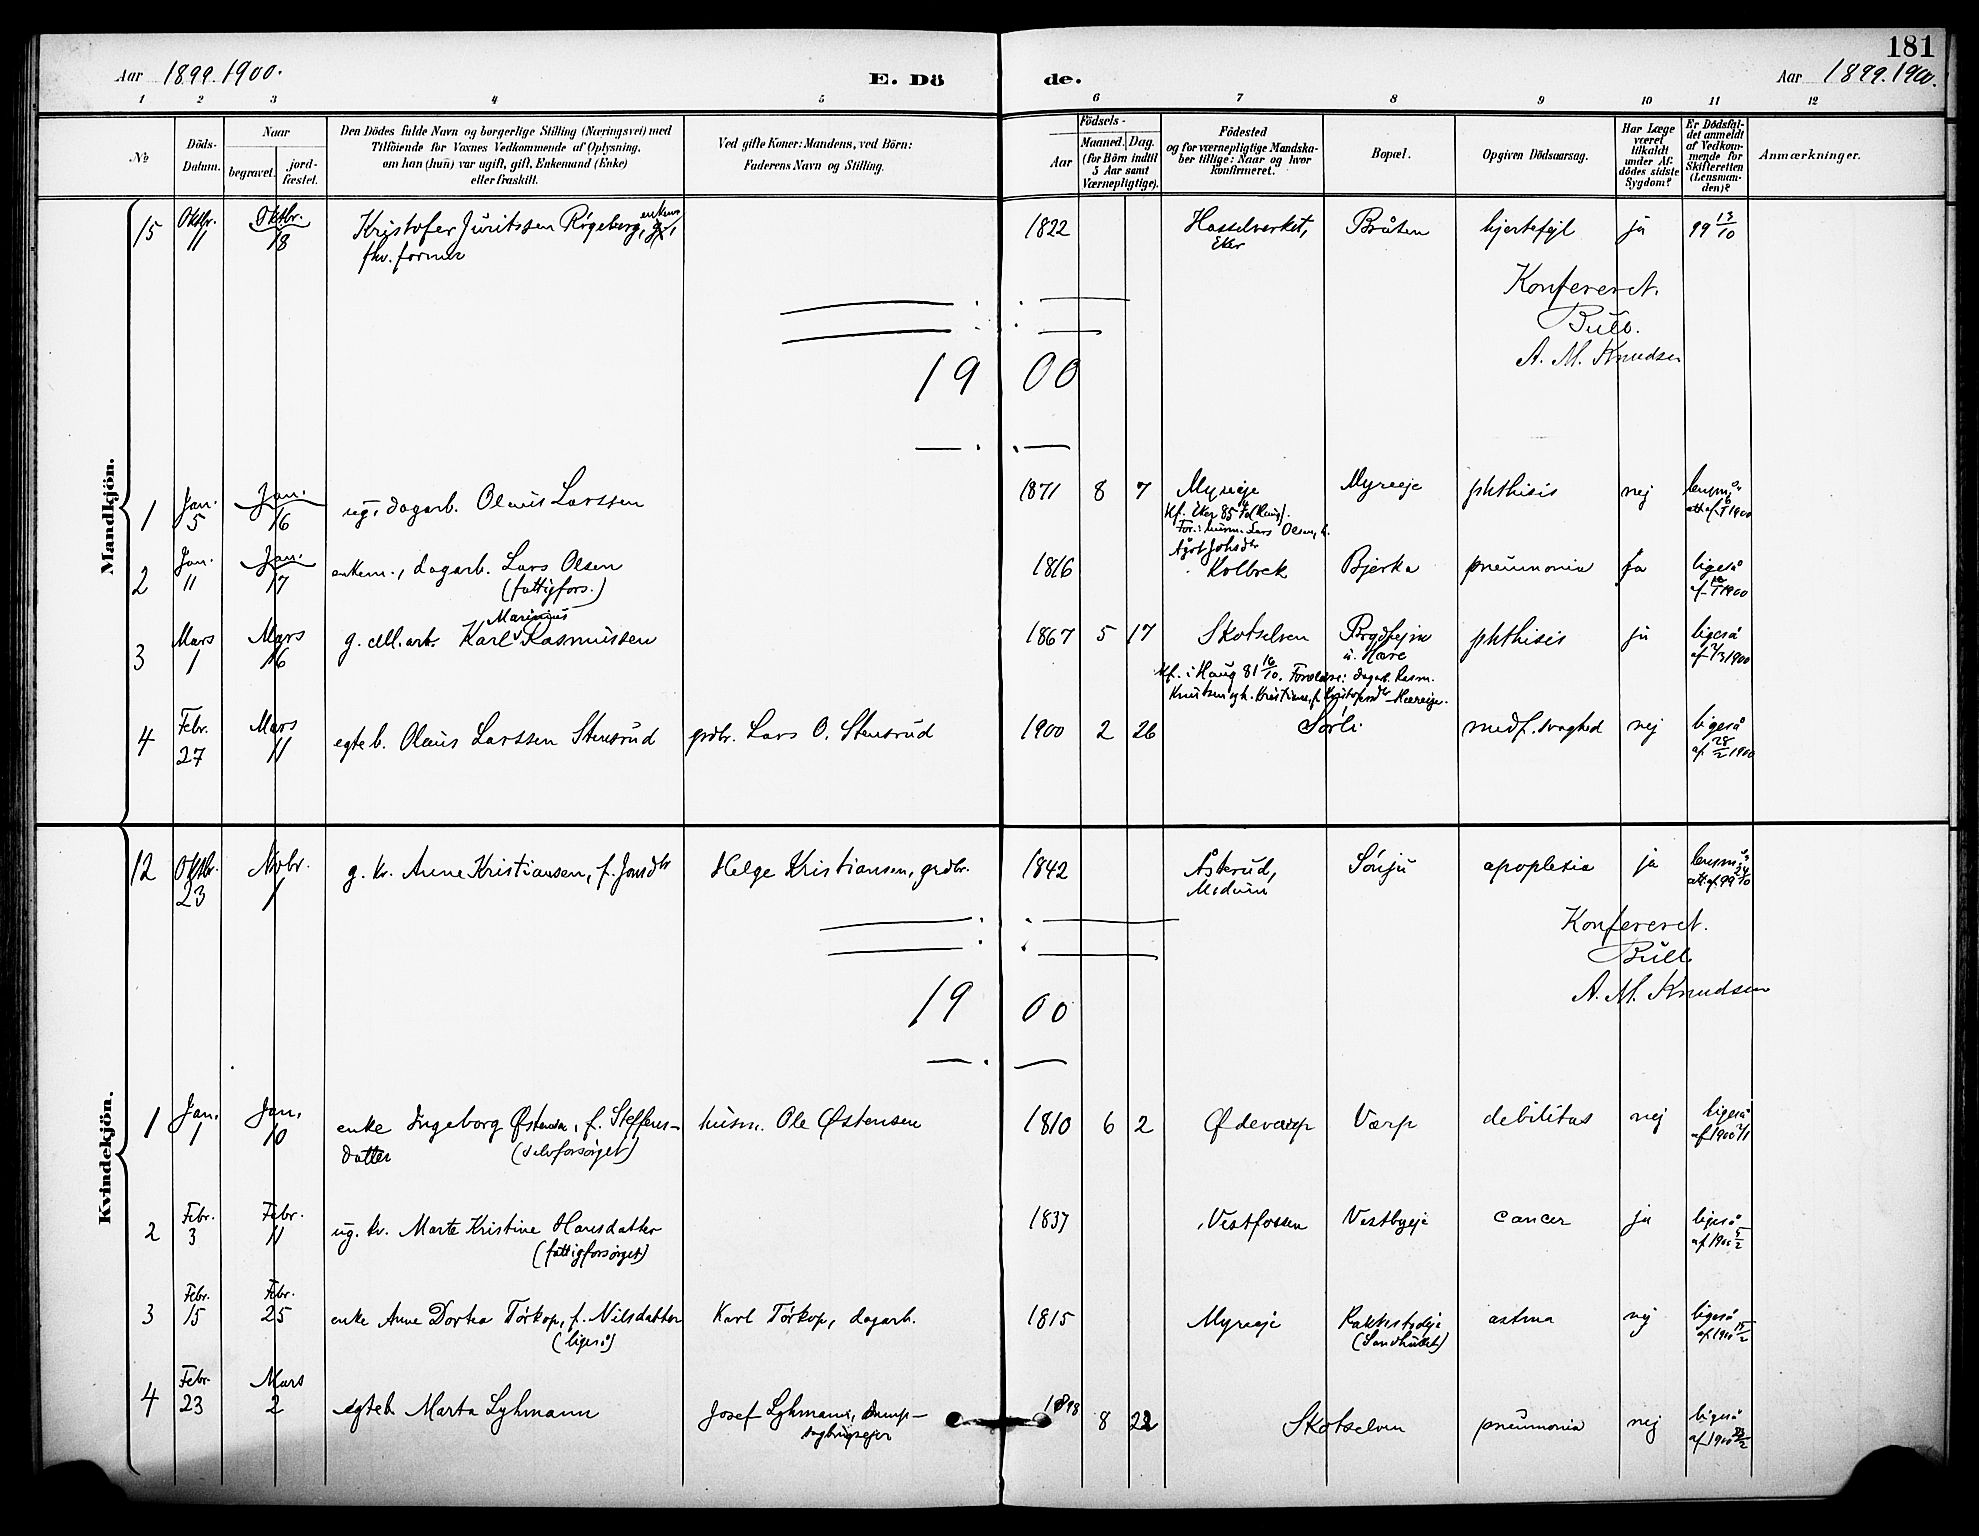 181
Aar 1899. 1900.
E. Dö de.
Aar 1899. 1900.
1 2 3 4 5 6 7 8 9 10 11 12
No
Döds-
Datum.
Naar
begravet.
jord-
fæstet.
Den Dödes fulde Navn og borgerlige Stilling (Næringsvei) med
Tilföiende for Voxnes Vedkommende af Oplysning,
om han (hun) var ugift, gift, Enkemand (Enke)
eller fraskilt.
Ved gifte Koner: Mandens, ved Börn:
Faderens Navn og Stilling.
Födsels-
Aar
Maaned.
Dag.
(for Börn indtil
5 Aar samt
Værnepligtige).
Födested
og for værnepligtige Mandska-
ber tillige: Naar og hvor
konfirmeret.
Bopæl.
Opgiven Dödsaarsag.
Har Læge
været
tilkaldt
under Af-
dödes sidste
Sygdom?
Er Dödsfal-
det anmeldt
af Vedkom-
mende for
Skifteretten
(Lensman-
den)?
Anmærkninger.
Mandkjön.
15 Oktbr. 11 Oktbr. 18 Kristofer Juritssen Rögeberg, enkem. 1822 Hasselverket, Bråten hjertefejl ja 99 13/10
fhv. former Eker
Konfereret.
Bull.
A. M. Knudsen
19 00
1 Jan. 5 Jan. 16 ug. dagarb. Olaus Larssen 1871 8 7 Myreeje Myreeje phthisis nej
Kf. Eker 85
For.: husm. Lars Olsen,
2 Jan. 11 Jan. 17 enkem., dagarb. Lars Olsen 1816 Kolbrek Bjerka pneumonia ja ligeså
(fattigfors.)
Marinius
3 Mars 1 Mars 16 g. Karl Rasmussen 1867 5 17 Skotselven phthisis ja ligeså
af 2/3 1900
Kf. i Haug 81 16/10. Forældre: dagarb. Rasm.
4 Febr. 27 Mars 11 egteb. Olaus Larssen Stensrud grdbr. Lars O. Stensrud 1900 2 26 Sörli medf. svaghed nej ligeså
af 28/2 1900
Kvindekjön.
12 Oktbr. 23 Novbr. 1 g. kv. Anne Kristiansen, f. Jonsdtr Helge Kristiansen, grdbr. 1842 Åsterud, Sönju apoplexia ja
Modum
Konfereret.
Bull
A. M. Knudsen
19 00
1 Jan. 1 Jan. 10 enke Ingeborg Østensen, f. Steffens- husm. Ole Østensen 1810 6 2 Ødevarp Varp debilitas nej ligeså
datter (selvforsörget) af 1900 2/1
2 Febr. 3 Febr. 11 ug. kv. Marte Kristine Hansdatter 1837 Vestfossen Vestbyeje cancer ja ligeså
(fattigforsörget) af 1900 5/2
3 Febr. 15 Febr. 25 enke Anne Dortea Törkop, f. Nilsdatter Karl Törkop, dagarb. 1815 Myreeje astma nej ligeså
(ligeså)
4 Febr. 23 Mars 2 egteb. Marta Lyhmann Josef Lyhmann, damp- 1898 8 22 Skotselven pneumonia nej ligeså
sagbrugsejer